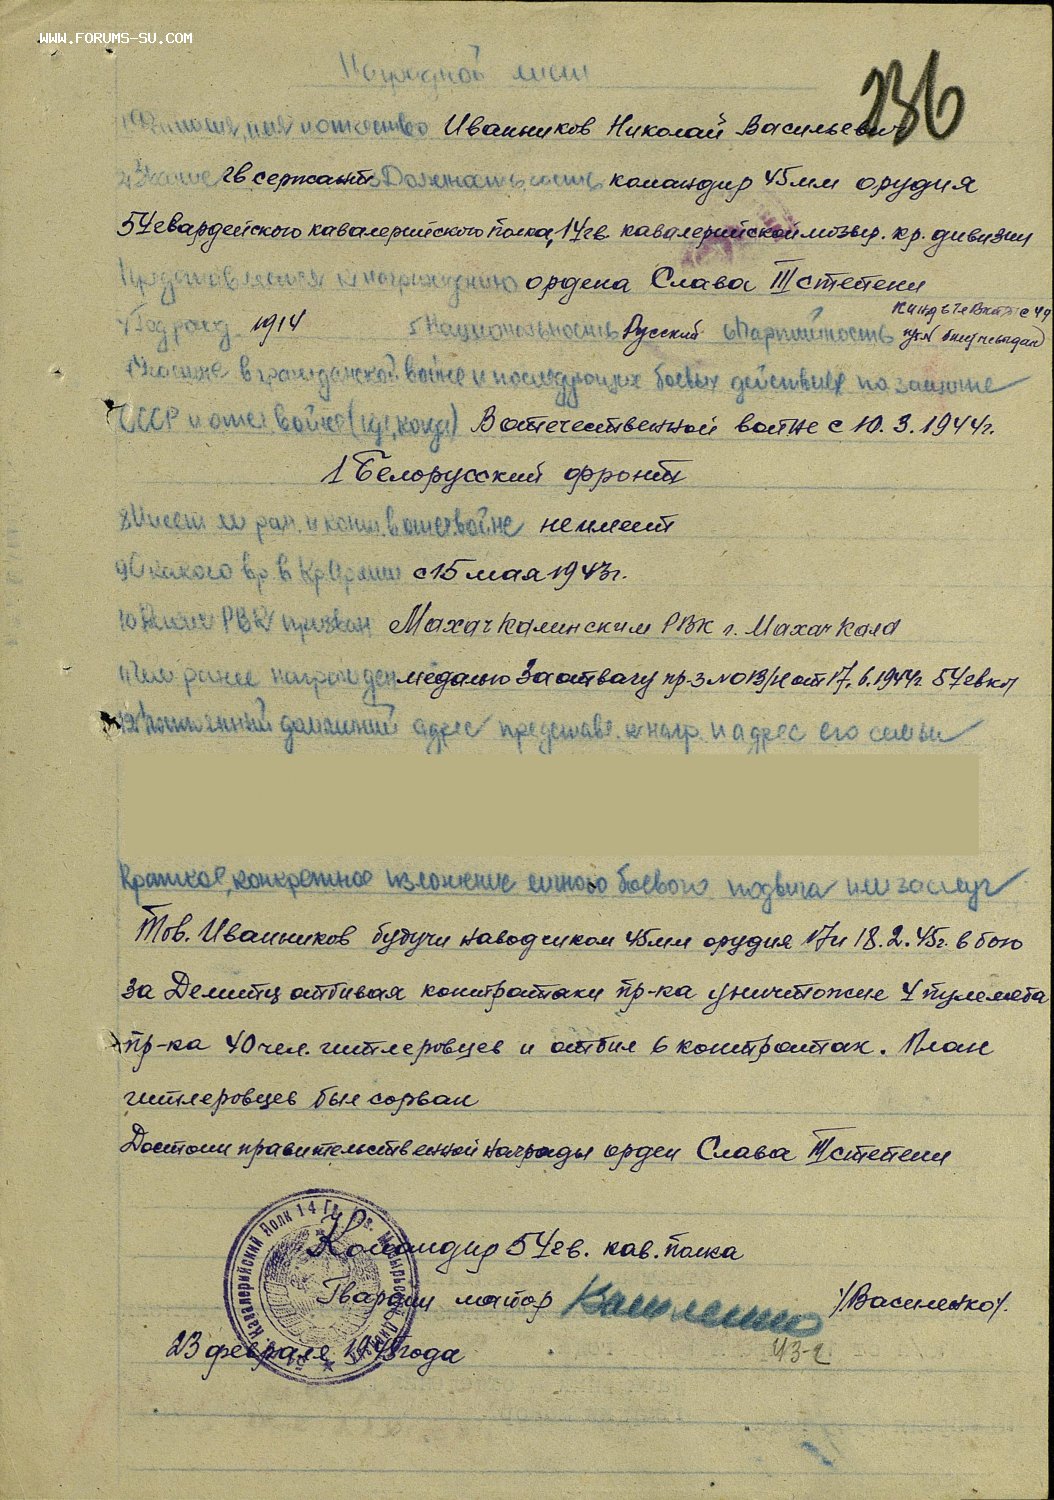 WWW.FORUMS-SU.COM
Наградной лист
236
1 Фамилия, имя и отчество Иванников Николай Васильевич
2 Звание гв сержант Должность, часть командир 45мм орудия
54гвардейского кавалерийского полка, 14гв. кавалерийской мозыр. кр. дивизии
Представляется к награждению ордена Слава III степени
4 Год рожд. 1914 5 Национальность Русский 6 Партийность Канд. ВКП с 44
Участие в гражданской войне и последующих боевых действиях по защите
СССР и отеч войне (где, когда) В отечественной войне с 10.3.1944г.
1 Белорусский фронт
8 Имеет ли ран. и конт. в отеч войне не имеет
9 С какого вр. в Кр Армии с 15 мая 1943г.
10 Каким РВК призван Махачкалинским РВК г. Махачкала
11 Чем ранее награжден медалью За отвагу пр-з №013/н от 17.6.1944г 54гвкп
12 Постоянный домашний адрес представл. к нагр. и адрес его семьи
Краткое, конкретное изложение личного боевого подвига или заслуг
Тов. Иванников будучи наводчиком 45мм орудия 17 и 18.2.45г. в бою
за Делитц отбивая контратаки пр-ка уничтожил 4 пулемета
пр-ка 40 чел. гитлеровцев и отбил 6 контратак. План
гитлеровцев был сорван
Достоин правительственной награды орден Слава III степени
Кавалерийский Полк 14 Гв.
Командир 54гв. кав. полка
Гвардии майор Василенко /Василенко/.
23 февраля 1945 года
43-г